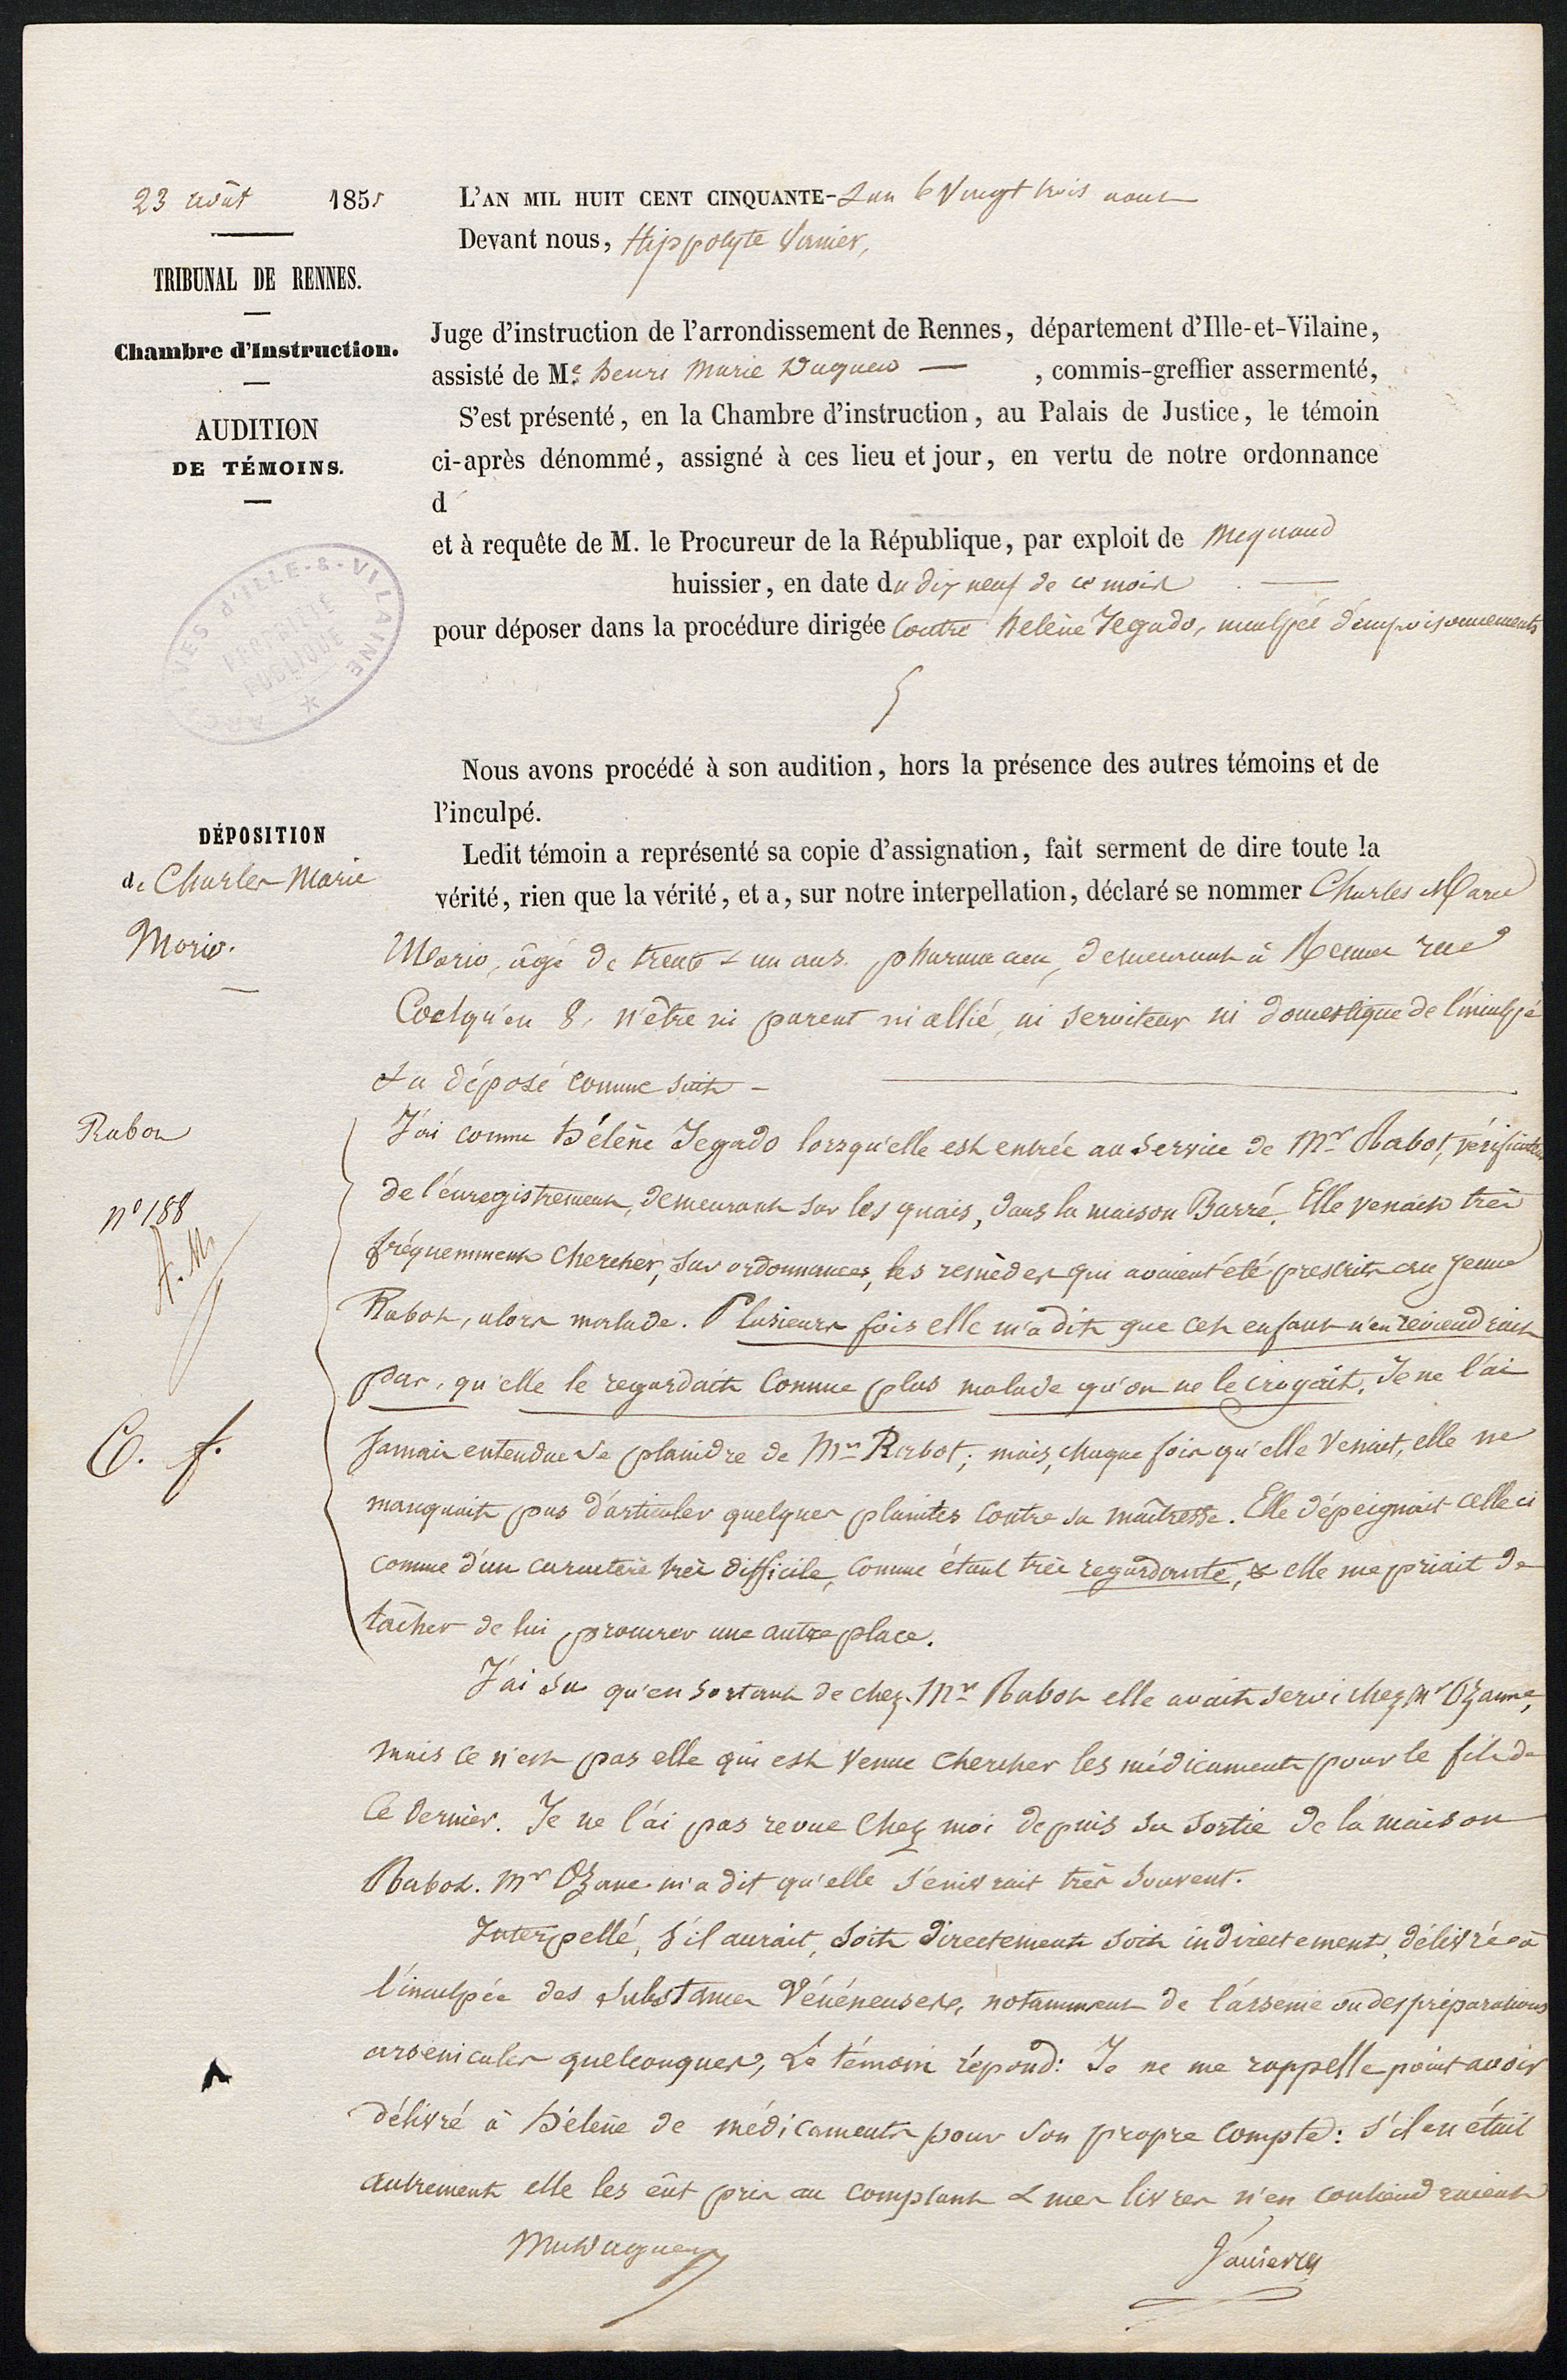 23 août 1851
TRIBUNAL DE RENNES.
Chambre d'Instruction.
AUDITION
DE TÉMOINS.
ARCHIVES d'ILLE-&-VILAINE
PROPRIÉTÉ
PUBLIQUE
L'AN MIL HUIT CENT CINQUANTE-& un le Vingt trois aout
Devant nous, Hippolyte Vannier,
Juge d'instruction de l'arrondissement de Rennes, département d'Ille-et-Vilaine,
assisté de Me. henri Marie — , commis-greffier assermenté,
S'est présenté, en la Chambre d'instruction, au Palais de Justice, le témoin
ci-après dénommé, assigné à ces lieu et jour, en vertu de notre ordonnance
d
et à requête de M. le Procureur de la République, par exploit de
huissier, en date du dix neuf de ce mois —
pour déposer dans la procédure dirigée Contre helène Jegado, inculpée d'empoisonnements
Nous avons procédé à son audition, hors la présence des autres témoins et de
l'inculpé.
Ledit témoin a représenté sa copie d'assignation, fait serment de dire toute la
vérité, rien que la vérité, et a, sur notre interpellation, déclaré se nommer Charles Marie
DÉPOSITION
de Charles Marie
Morio.
Morio, âgé de trente & un ans. pharmacien, demeurant à Rennes rue
Coëtquen 8, n'être ni parent ni allié, ni serviteur ni domestique de l'inculpé
& a déposé comme suit —
Rabot
n° 188
C. f.
J'ai connu hélène Jegado lorsqu'elle est entrée au service de Mr Rabot, vérificateur
de l'enregistrement, demeurant sur les quais, dans la maison Barré. Elle venait très
fréquemment chercher, sur ordonnances, les remèdes qui avaient été prescrits au jeune
Rabot, alors malade. Plusieurs fois elle m'a dit que cet enfant n'en reviendrait
pas, qu'elle le regardait comme plus malade qu'on ne le croyait. Je ne l'ai
jamais entendue se plaindre de Mr Rabot; mais, chaque fois qu'elle venait, elle ne
manquait pas d'articuler quelques plaintes contre sa maîtresse. Elle dépeignait celle ci
comme d'un caractère très difficile, comme étant très regardante, & elle me priait de
tâcher de lui procurer une autre place.
J'ai su qu'en sortant de chez Mr Rabot elle avait servi chez Mr Ozanne,
mais ce n'est pas elle qui est venue chercher les médicaments pour le fils de
ce dernier. Je ne l'ai pas revue chez moi depuis sa sortie de la maison
Rabot. Mr Ozane m'a dit qu'elle s'enivrait très souvent.
Interpellé, s'il aurait, soit directement soit indirectement, délivré à
l'inculpée des substances vénéneuses, notamment de l'arsenic ou des préparations
arsenicales quelconques, Le témoin répond: Je ne me rappelle point avoir
délivré à hélène de médicaments pour son propre compte: s'il en était
autrement elle les eût pris au comptant & mes livres n'en contiendraient